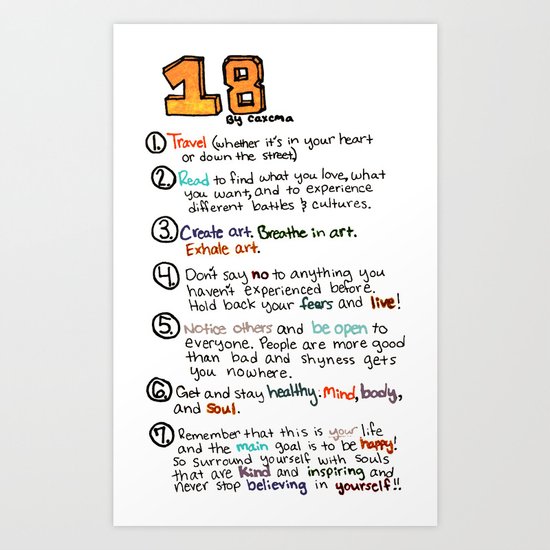 18
By caxema
1. Travel (whether it's in your heart
or down the street)
2. Read to find what you love, what
you want, and to experience
different battles & cultures.
3. Create art. Breathe in art.
Exhale art.
4. Don't say no to anything you
haven't experienced before.
Hold back your fears and live!
5. Notice others and be open to
everyone. People are more good
than bad and shyness gets
you nowhere.
6. Get and stay healthy: Mind, body,
and soul.
7. Remember that this is your life
and the main goal is to be happy!
So surround yourself with souls
that are kind and inspiring and
never stop believing in yourself!!